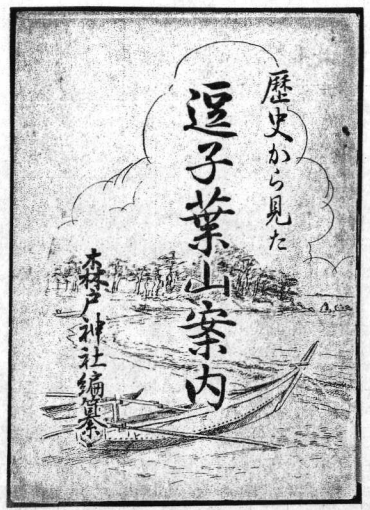 歴史から見た
逗子葉山案内
森戸神社編纂